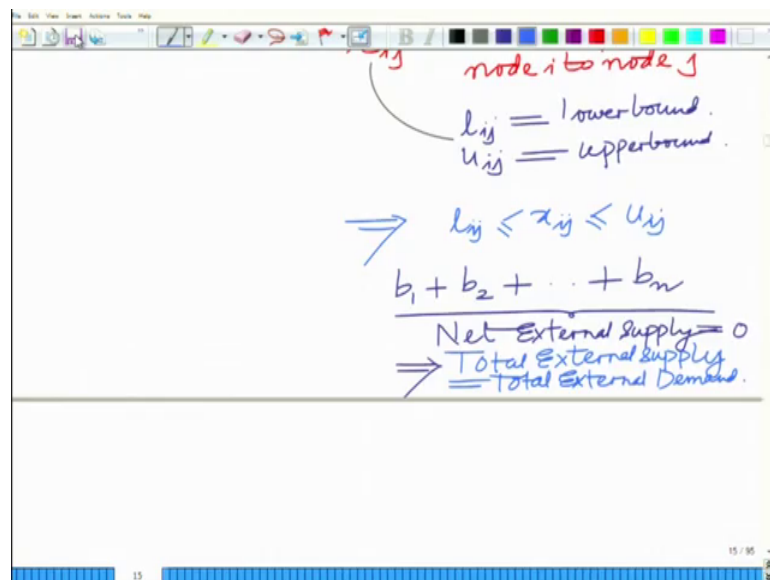 File Edit View Insert Actions Tools Help
B I
node i to node j
l_ij = lowerbound.
u_ij = upperbound.
⇒ l_ij ≤ x_ij ≤ u_ij
b_1 + b_2 + .. + b_n
Net External Supply = 0
⇒ Total External Supply
= Total External Demand.
15 / 95
15